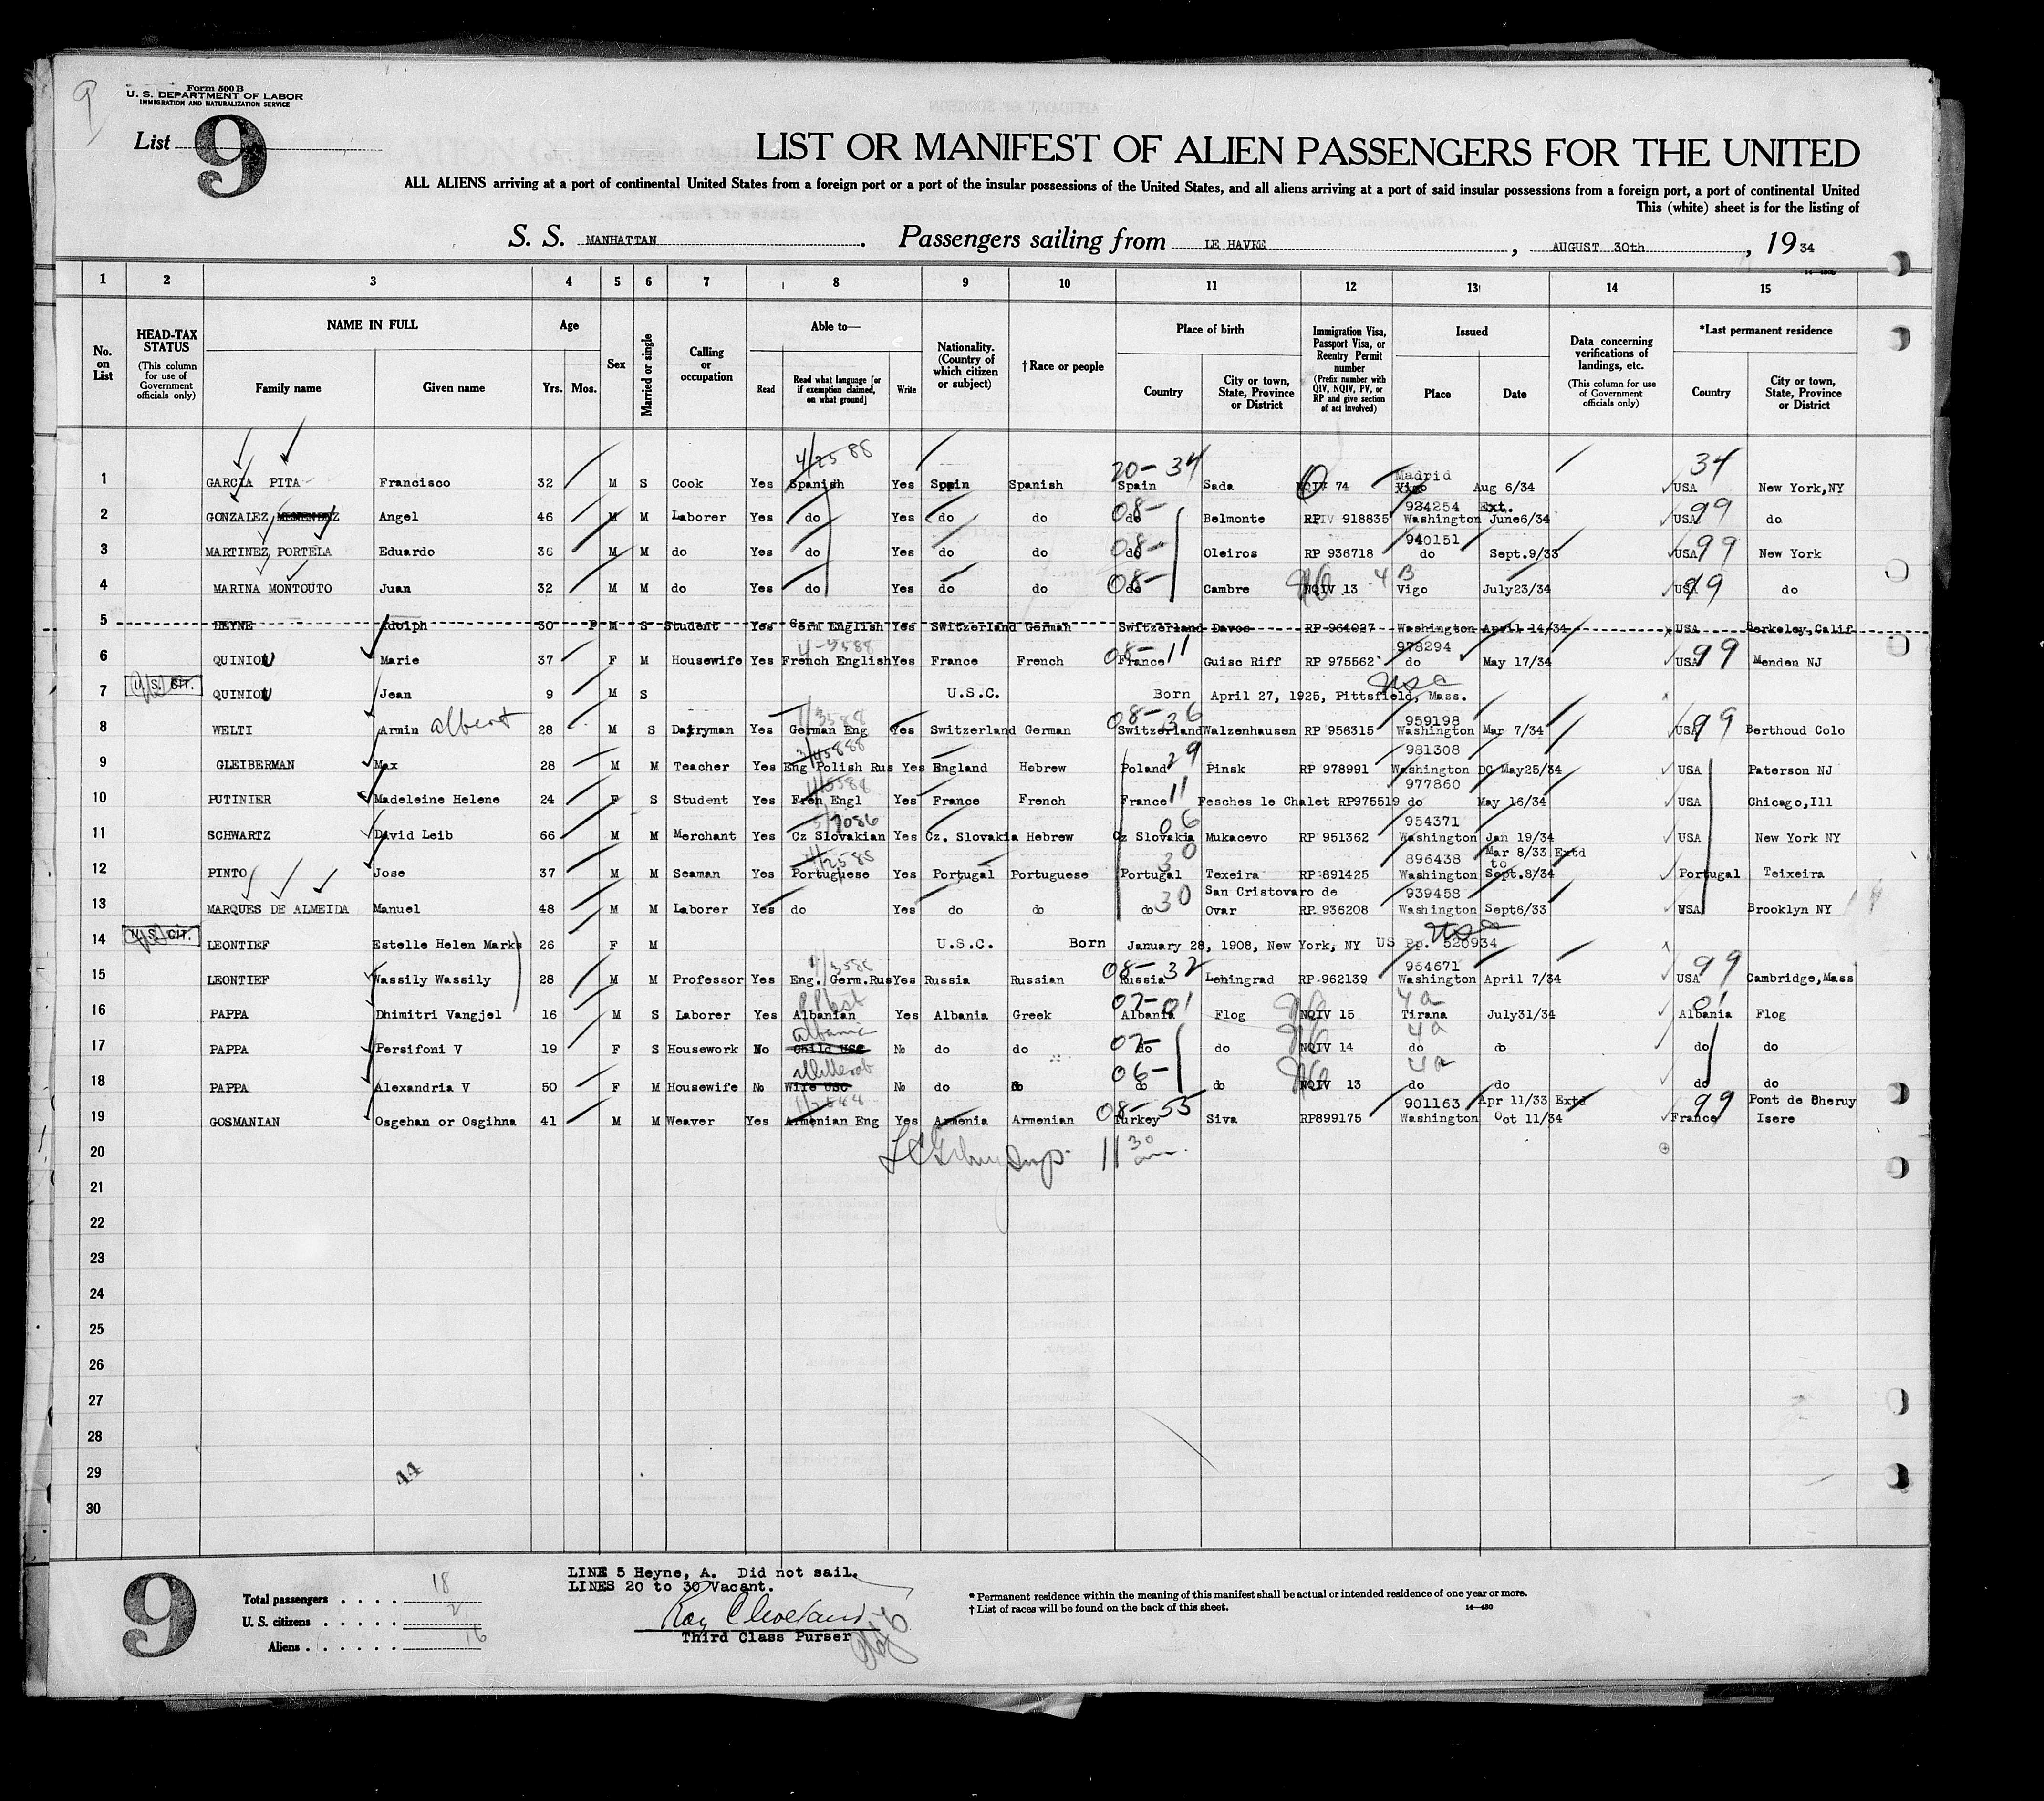 9
Form 500 B
U. S. DEPARTMENT OF LABOR
IMMIGRATION AND NATURALIZATION SERVICE
List 9
LIST OR MANIFEST OF ALIEN PASSENGERS FOR THE UNITED
ALL ALIENS arriving at a port of continental United States from a foreign port or a port of the insular possessions of the United States, and all aliens arriving at a port of said insular possessions from a foreign port, a port of continental United
This (white) sheet is for the listing of
S. S. MANHATTAN. Passengers sailing from LE HAVRE, AUGUST 30th, 19 34
1 2 3 4 5 6 7 8 9 10 11 12 13 14 15
No. on List
HEAD-TAX STATUS (This column for use of Government officials only)
NAME IN FULL Family name Given name
Age Yrs. Mos.
Sex
Married or single
Calling or occupation
Able to— Read Read what language [or if exemption claimed, on what ground] Write
Nationality. (Country of which citizen or subject)
†Race or people
Place of birth Country City or town, State, Province or District
Immigration Visa, Passport Visa, or Reentry Permit number (Prefix number with QIV, NQIV, PV, or RP and give section of act involved)
Issued Place Date
Data concerning verifications of landings, etc. (This column for use of Government officials only)
*Last permanent residence Country City or town, State, Province or District
4/2588 20-34 Madrid 34
1 GARCIA PITA Francisco 32 M S Cook Yes Spanish Yes Spain Spanish Spain Sada NQIV 74 Vigo Aug 6/34 USA New York,NY
08- 924254 Ext. 99
2 GONZALEZ MENENDEZ Angel 46 M M Laborer Yes do Yes do do do Belmonte RPIV 918835 Washington June6/34 USA do
08- 940151 99
3 MARTINEZ PORTELA Eduardo 36 M M do Yes do Yes do do do Oleiros RP 936718 do Sept.9/33 USA New York
08- 4 B 99
4 MARINA MONTOUTO Juan 32 M M do Yes do Yes do do do Cambre NQIV 13 Vigo July23/34 USA do
5 HEYNE Adolph 30 P M S Student Yes Germ English Yes Switzerland German Switzerland Davos RP 964027 Washington April 14/34 USA Berkeley,Calif
4-3588 08-11 978294 99
6 QUINIOU Marie 37 F M Housewife Yes French English Yes France French France Guisc Riff RP 975562 do May 17/34 USA Menden NJ
U. S. CIT. USA
7 QUINIOU Jean 9 M S U.S.C. Born April 27, 1925, Pittsfield, Mass.
1/3588 08-36 959198 99
8 WELTI Armin Albert 28 M S Dairyman Yes German Eng Yes Switzerland German Switzerland Walzenhausen RP 956315 Washington Mar 7/34 USA Berthoud Colo
29 981308
9 GLEIBERMAN Max 28 M M Teacher Yes Eng Polish Rus Yes England Hebrew Poland Pinsk RP 978991 Washington DC May25/34 USA Paterson NJ
11 977860
10 PUTINIER Madeleine Helene 24 F S Student Yes Fren Engl Yes France French France Fesches le Chalet RP975519 do May 16/34 USA Chicago,Ill
06 954371
11 SCHWARTZ David Leib 66 M M Merchant Yes Cz Slovakian Yes Cz. Slovakia Hebrew Cz Slovakia Mukacevo RP 951362 Washington Jan 19/34 USA New York NY
4/2588 30 896438 Mar 8/33 Extd to
12 PINTO Jose 37 M M Seaman Yes Portuguese Yes Portugal Portuguese Portugal Texeira RP 891425 Washington Sept.8/34 Portugal Teixeira
30 San Cristovaro de 939458
13 MARQUES DE ALMEIDA Manuel 48 M M Laborer Yes do Yes do do do Ovar RP 936208 Washington Sept6/33 USA Brooklyn NY
U. S. CIT. USA
14 LEONTIEF Estelle Helen Marks 26 F M U.S.C. Born January 28, 1908, New York, NY US Pp. 520934
08-32 964671 99
15 LEONTIEF Wassily Wassily 28 M M Professor Yes Eng. Germ.Rus Yes Russia Russian Russia Leningrad RP 962139 Washington April 7/34 USA Cambridge,Mass
07-01 4a 01
16 PAPPA Dhimitri Vangjel 16 M S Laborer Yes Albanian Yes Albania Greek Albania Flog NQIV 15 Tirana July31/34 Albania Flog
07- 4a
17 PAPPA Persifoni V 19 F S Housework No Child USC No do do do do NQIV 14 do do do do
06- 4a
18 PAPPA Alexandria V 50 F M Housewife No Wife USC No do do do do NQIV 13 do do do do
08-55 901163 Apr 11/33 Extd 99 Pont de Cheruy
19 GOSMANIAN Osgehan or Osgihna 41 M M Weaver Yes Armenian Eng Yes Armenia Armenian Turkey Siva RP899175 Washington Oct 11/34 France Isere
20 Insp. 11 30 am.
21
22
23
24
25
26
27
28
29
30
44
9
Total passengers 18
U. S. citizens 2
Aliens 16
LINE 5 Heyne, A. Did not sail.
LINES 20 to 30 Vacant.
Roy Cleveland
Third Class Purser
* Permanent residence within the meaning of this manifest shall be actual or intended residence of one year or more.
† List of races will be found on the back of this sheet.
14—430